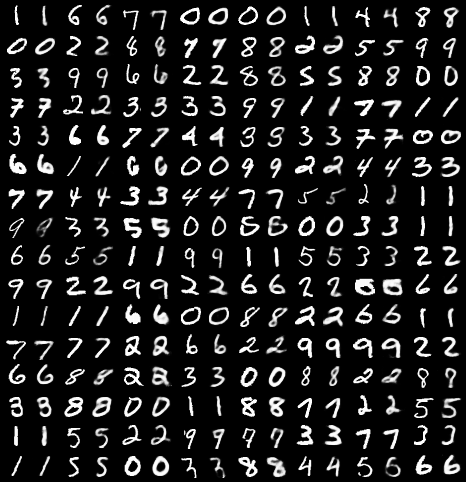 1 1 6 6 7 7 0 0 0 0 1 1 4 4 8 8
0 0 2 2 8 8 7 7 8 8 2 2 5 5 9 9
3 3 9 9 6 6 2 2 8 8 5 5 8 8 0 0
7 7 2 2 3 3 3 3 9 9 1 1 7 7 1 1
3 3 6 6 7 7 4 4 3 3 3 3 7 7 0 0
6 6 1 1 6 6 0 0 9 9 2 2 4 4 3 3
7 7 4 4 3 3 4 4 7 7 5 5 2 2 1 1
9 3 3 5 5 0 0 0 0 3 3 1 1
6 6 5 5 1 1 9 9 1 1 5 5 3 3 2 2
9 9 2 2 9 9 2 2 6 6 2 2 6 6
1 1 1 1 6 6 0 0 8 8 2 2 6 6 1 1
7 7 7 7 2 2 6 6 2 2 9 9 9 9 2 2
6 6 8 8 2 2 3 3 0 0 8 8 2 2 8
3 3 8 8 0 0 1 1 8 8 7 7 2 2 5 5
1 1 5 5 2 2 9 9 7 7 3 3 7 7 3 3
1 1 5 5 0 0 3 3 8 8 4 4 5 6 6